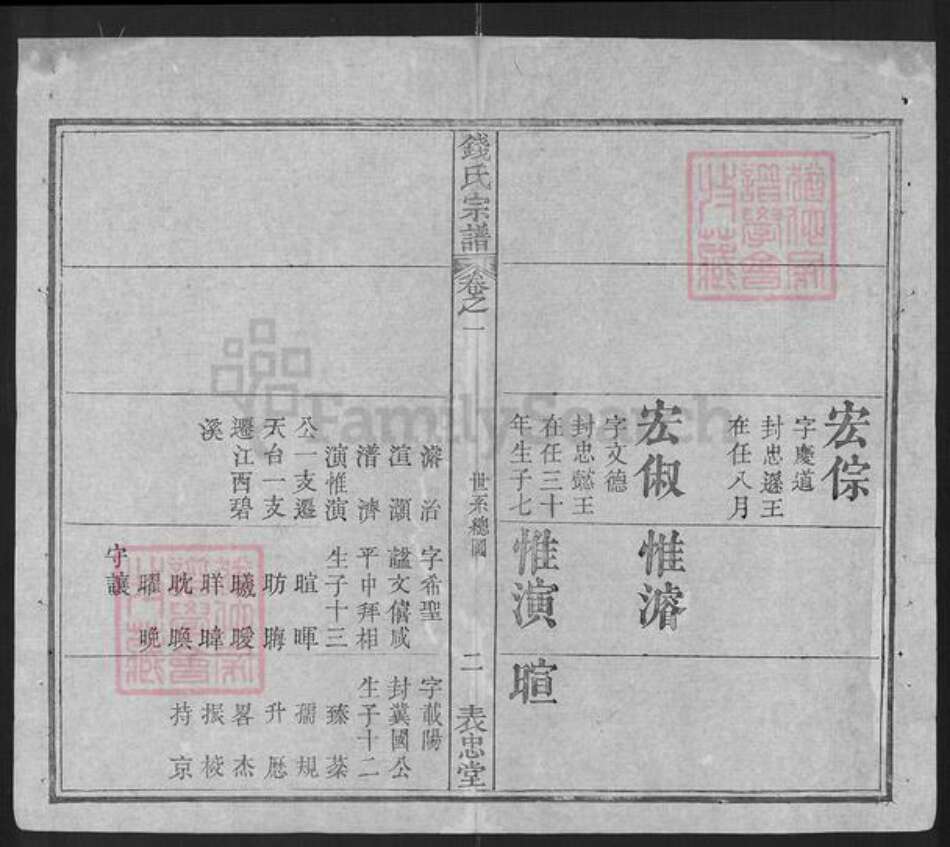 宏倧
字慶道
封忠遜王
在任八月
宏俶
字文德
封忠懿王
在任三十
年生子七
惟濬
惟演
暄
錢氏宗譜
卷之一
世系總圖
二
表忠堂
濬 治
渲 灝
漕 濟
演惟演
公一支遷
天台一支
遷江西碧
溪
字希聖
諡文僖咸
平中拜相
生子十三
暄 暉
昉 晦
曦 曖
晘 暐
耽 㬇
曜 晚
守讓
字載陽
封冀國公
生子十二
臻 蘂
孺 規
升 愿
景 杰
振 棱
持 京
FamilySearch